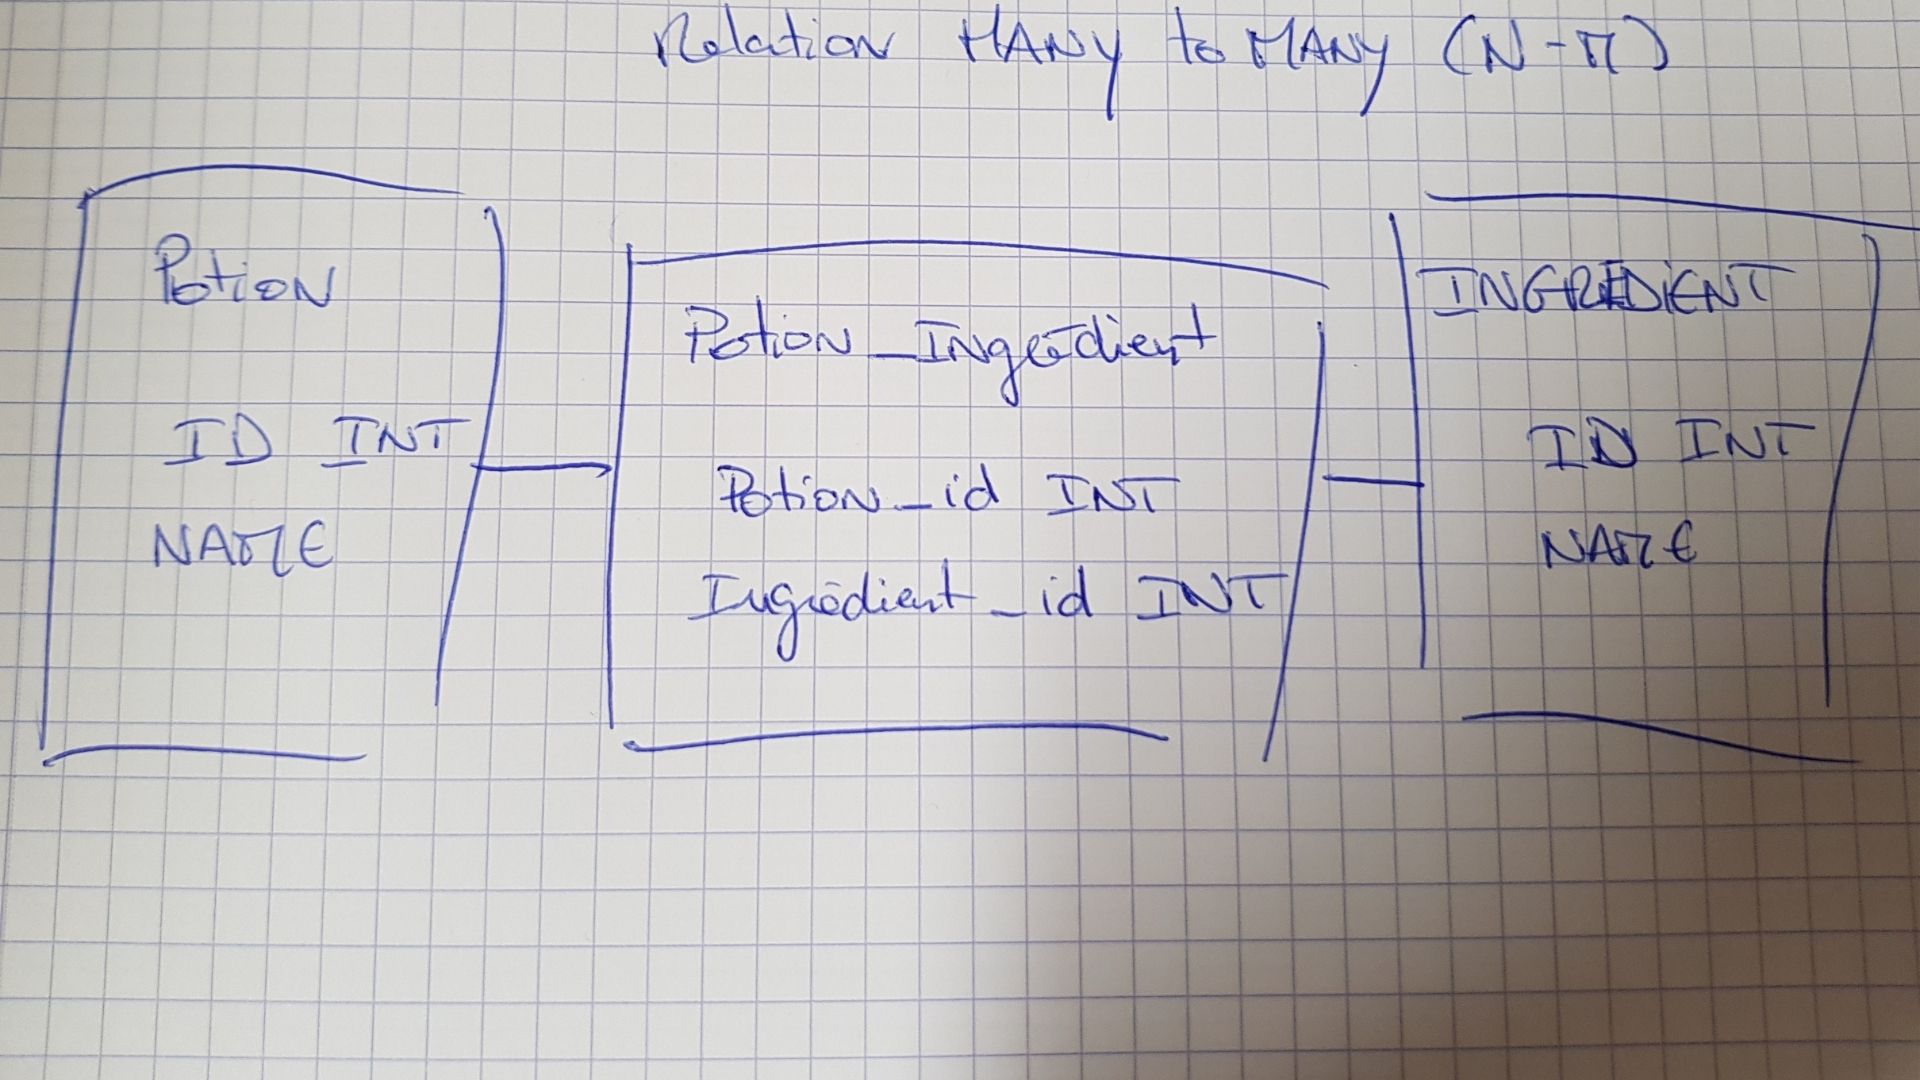 Relation MANY to MANY (N-M)
Potion
ID INT
NAME
Potion_Ingrédient
Potion_id INT
Ingrédient_id INT
INGREDIENT
ID INT
NAME